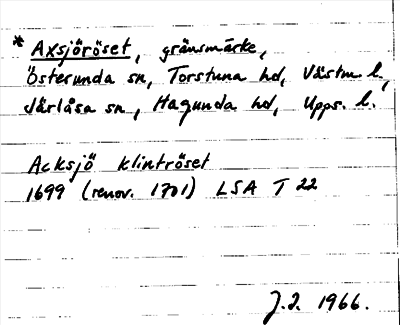 * Axsjöröset, gränsmärke,
Österunda sn, Torstuna hd, Västm. l.,
Järlåsa sn, Hagunda hd, Upps. l.
Acksjö klintröset
1699 (renov. 1701) LSA T 22
J.I. 1966.